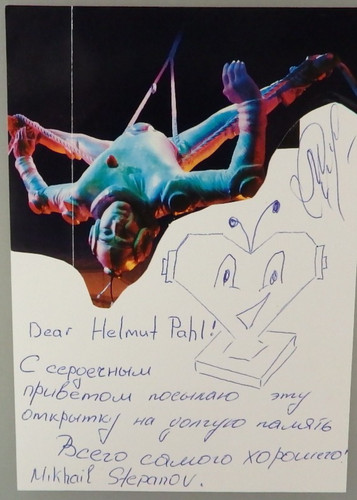 Dear Helmut Pahl!
С сердечным
приветом посылаю эту
открытку на долгую память
Всего самого хорошего!
Mikhail Stepanov.